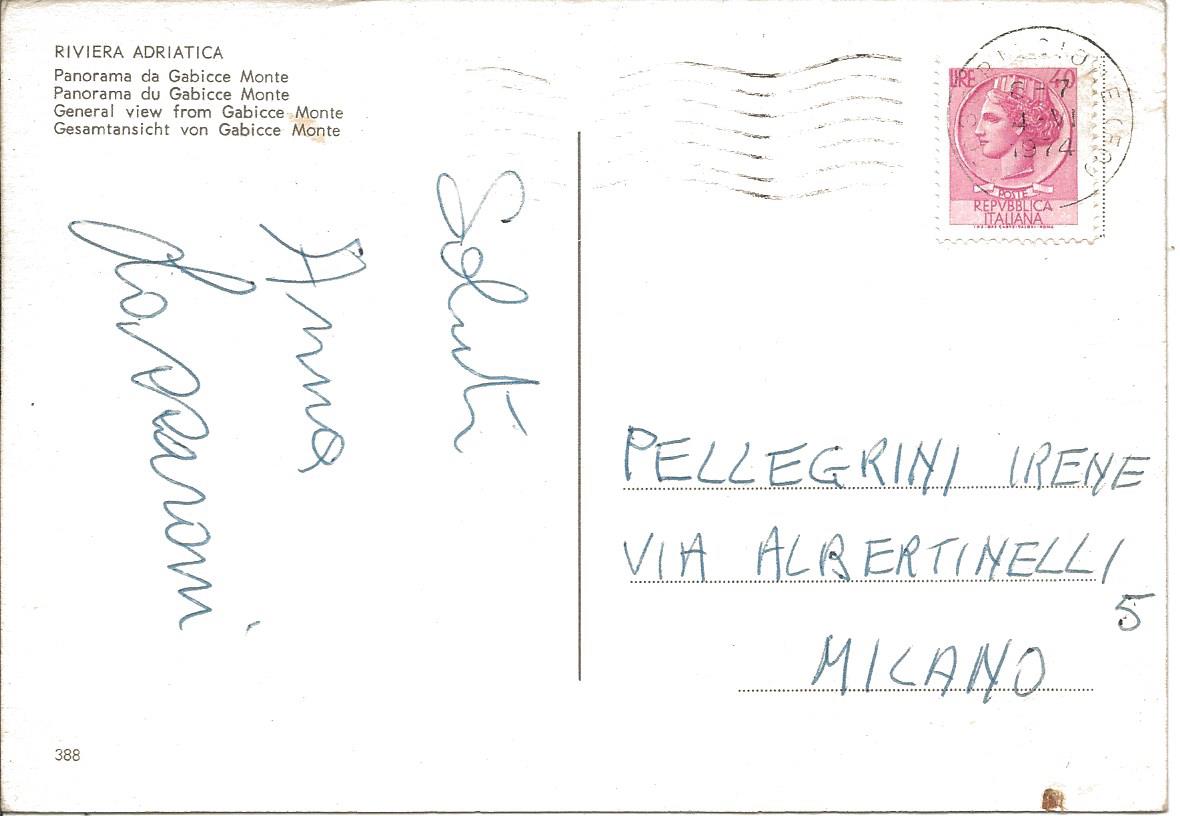 RIVIERA ADRIATICA
Panorama da Gabicce Monte
Panorama du Gabicce Monte
General view from Gabicce Monte
Gesamtansicht von Gabicce Monte
LIRE 40
6-7
1974
POSTE
REPVBBLICA
ITALIANA
Saluti
Anna
PELLEGRINI IRENE
VIA ALBERTINELLI
5
MILANO
388